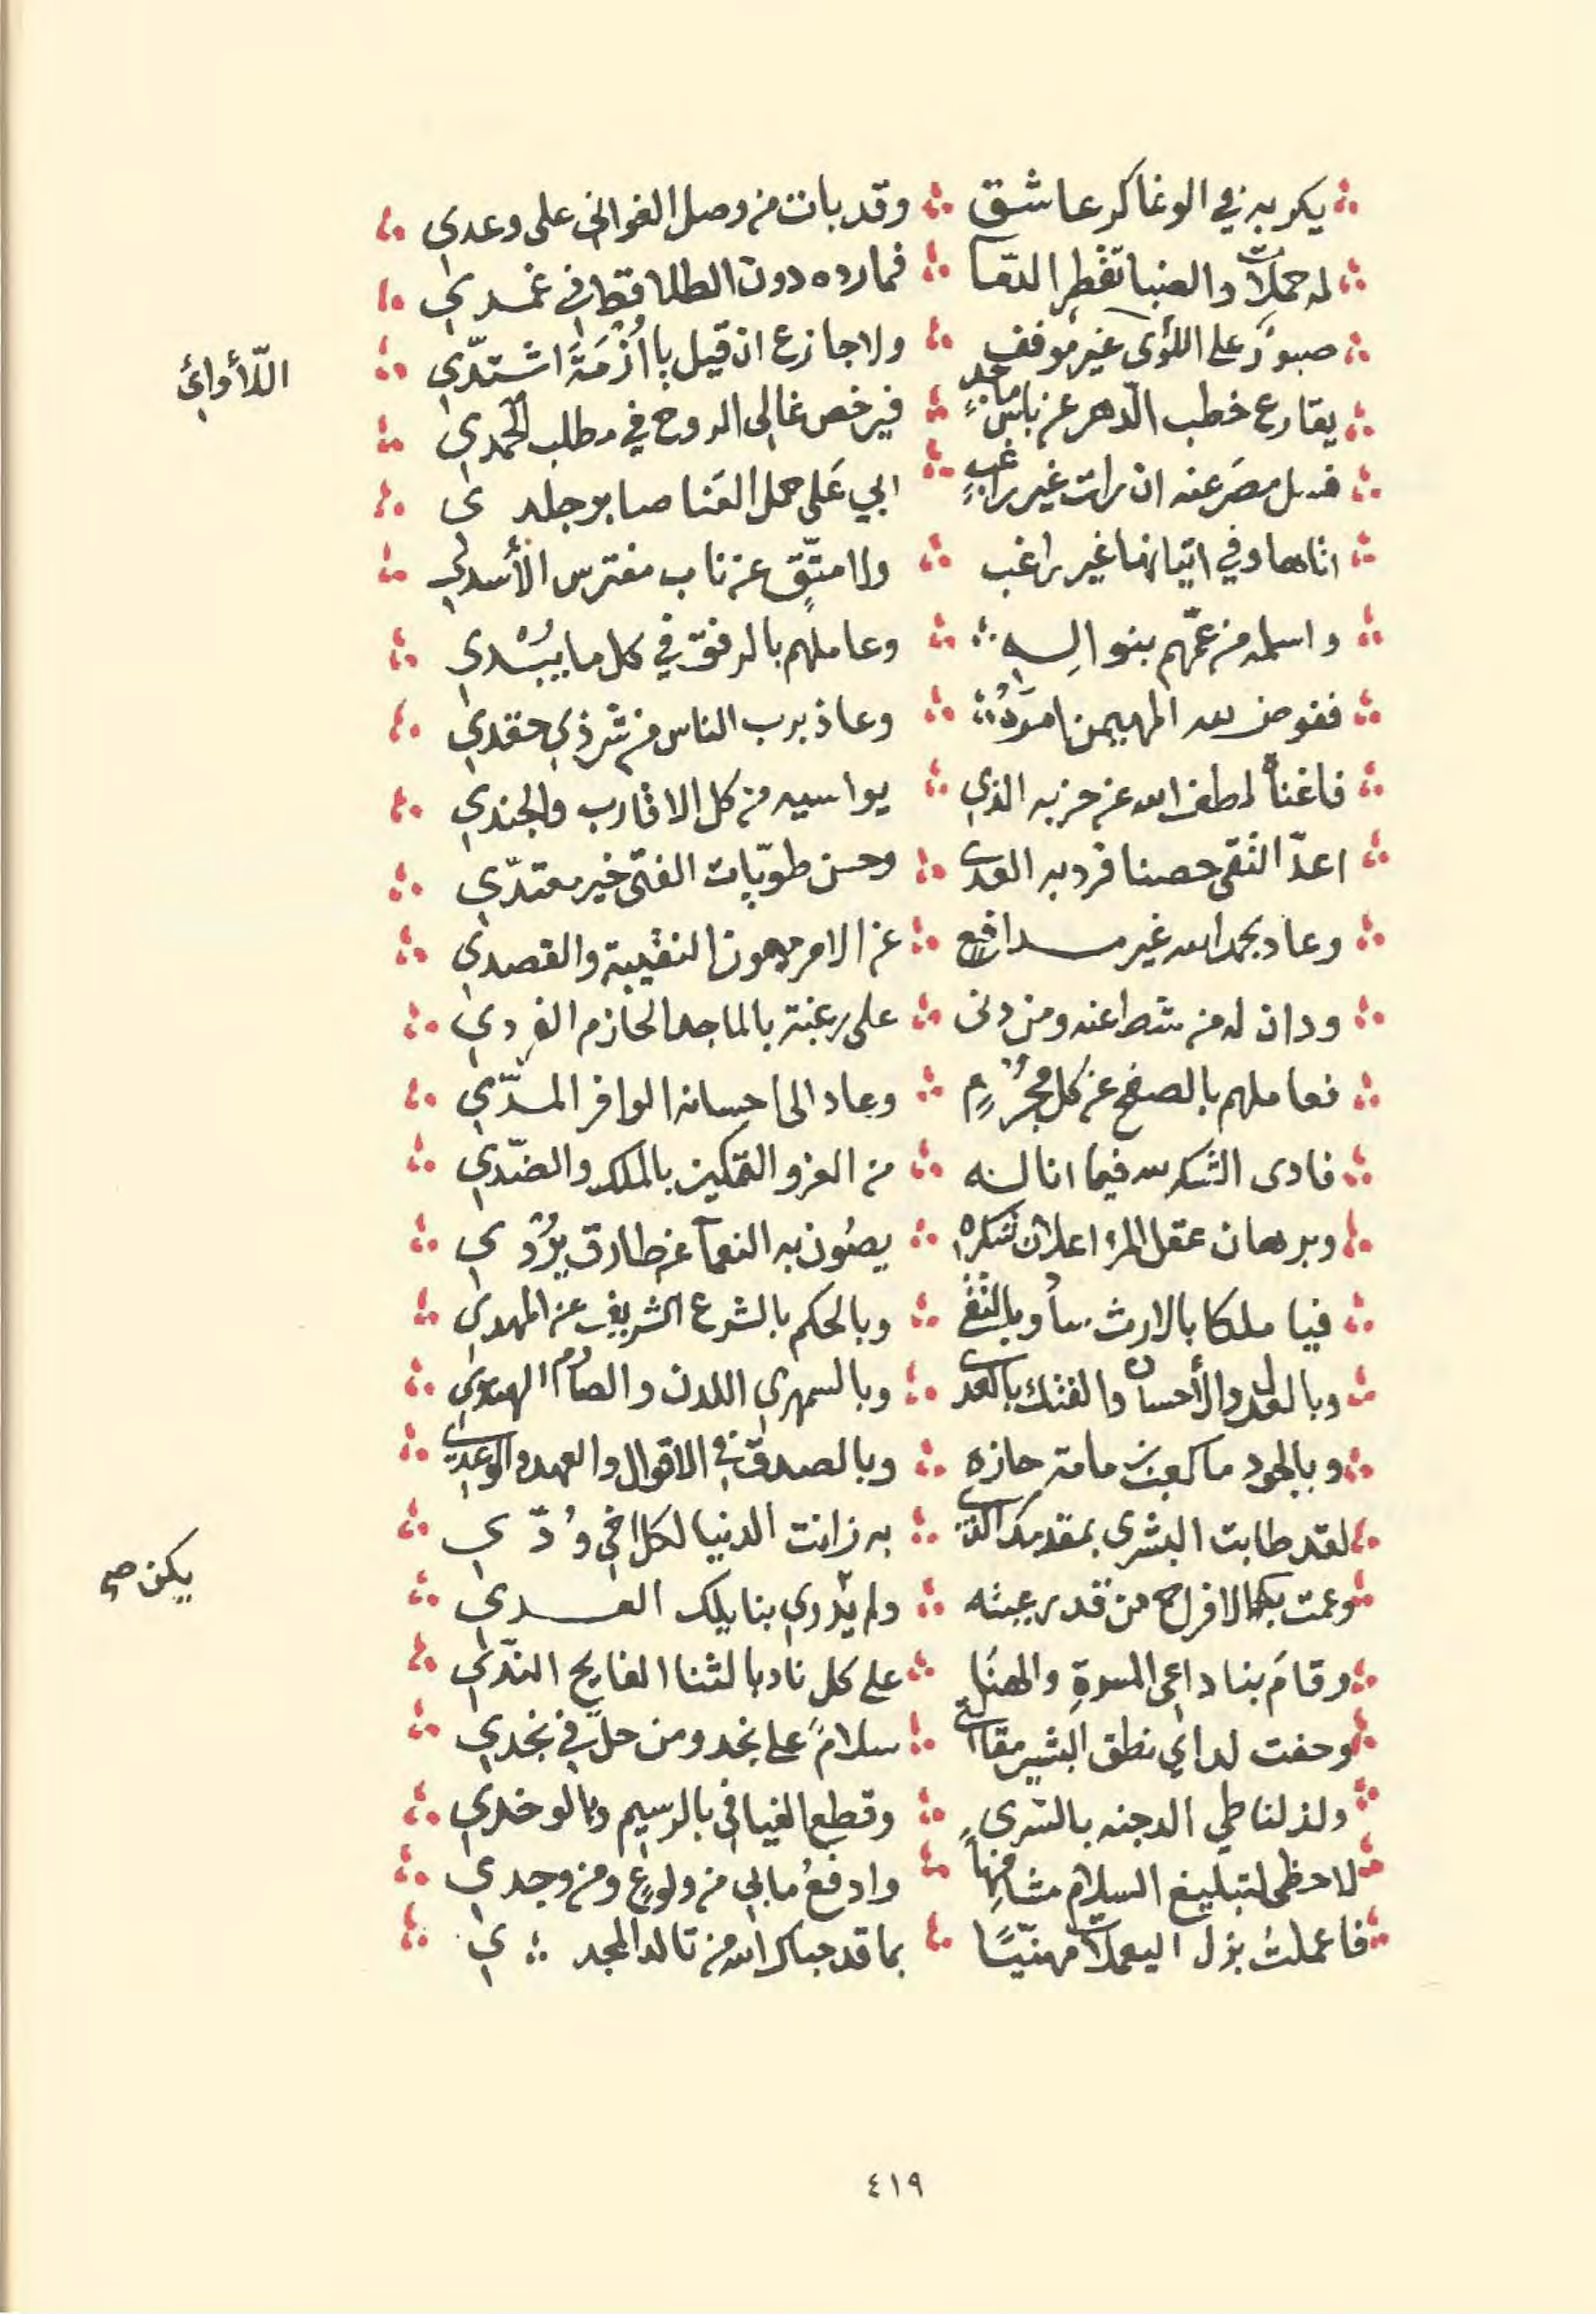 يكر به في الوغا كر عاشق ؞ وقد بات من وصل الغواني على وعدي
له حملات والضبا تقطر الدما ؞ فما رده دون الطلا قط في غمدي
صبور على اللؤى غير موقف ؞ ولا جازع ان قيل يا أزمة اشتدّي
اللّأوائ
يقارع خطب الدّهر عن باس ماجدٍ ؞ فيرخص غالي الروح في مطلب الحمدي
فسل مصر عنه ان رات غير راغبٍ ؞ ابي على حمل القنا صابر جلد ي
اتاها وفي اتيانها غير راغب ؞ ولا متّقٍ عن ناب مفترس الأسدي
واسلمه من عمّهم بنو اليه ؞ وعاملهم بالرفق في كل ما يبُسْدي
ففوض لله المهيمن امرَهُ ؞ وعاذ برب الناس من شر ذي حقدي
فاغناه لطف الله عن حزبه الذي ؞ يواسيه من كل الاقارب والجندي
اعدّ التقى حصنا فرد به العدى ؞ وحسن طويّات الفتى خير معتدّي
وعاد بحمد الله غير مدافع ؞ عن الامر ميمون النقيبة والقصدي
ودان له من شط عنه ومن دنى ؞ على رغبة بالماجد الحازم الفردي
فعاملهم بالصفح عن كل مجُرٍم ؞ وعاد الى احسانه الوافر المدّي
فادى الشكر لله فيما اناله ؞ من العز والتمكين بالملك والضّدي
وبرهان عقل المرء اعلان شكره ؞ يصُون به النعمآ عن طارق يرُدْي
فيا ملكا بالارث سأد وبالتقى ؞ وبالحكم بالشرع الشريف عن المهدي
وبالعدل والأحسان والفتك بالعدى ؞ وبالسمهري اللدن والصارم الهندي
وبالجود ما كعب بن مامة حازه ؞ وبالصدق في الاقوال والعهد والوعدي
لقد طابت البشرى بمقدمك الذي ؞ به زانت الدنيا لكل اخي وُدّ ي
وعمت بكم الافراح من قد رعيته ؞ ولم يَدْري بنا يلك العدي
يكن صح
وقام بنا داعي المسرةِ والهنَا ؞ على كل نادبا لثنا الفايح الندّي
وحفت لداي نطق البشير مقالتي ؞ سلامٌ على نجد ومن حل في نجدي
ولذ لنا طي الدجنه بالسرى ؞ وقطع الفيافي بالرسيم وبالوخدي
لاحظى لتبليغ السلام مشافهاً ؞ وادفعُ ما بي من ولوعٍ ومن وجدي
فاعملتُ بزل اليعملات مهنّيًا ؞ بما قد حباك الله من تالد المجد ؞ ي
٤١٩